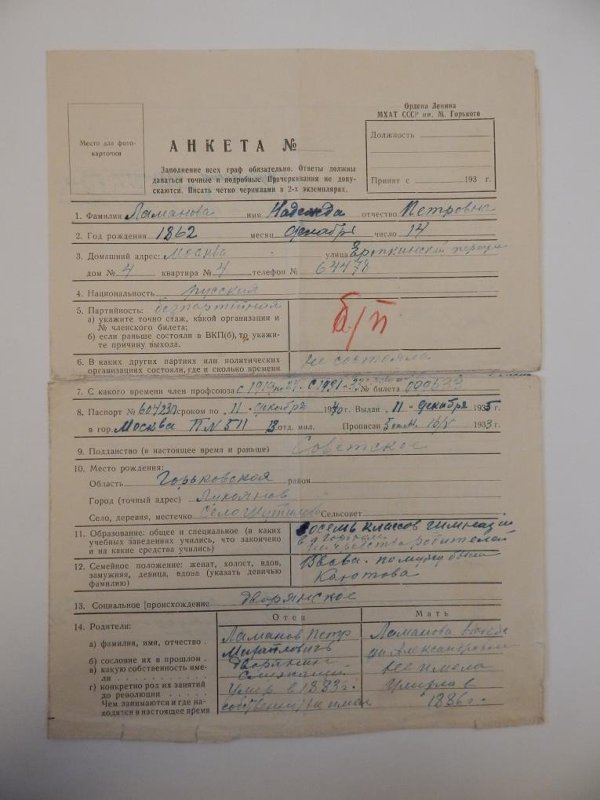 Место для фото-
карточки
АНКЕТА №
Заполнение всех граф обязательно. Ответы должны
даваться точные и подробные. Прочеркивания не допу-
скаются. Писать четко чернилами в 2-х экземплярах.
Ордена Ленина
МХАТ СССР им. М. Горького
Должность
Принят с 193 г.
1. Фамилия Ламанова имя Надежда отчество Петровна
2. Год рождения 1862 месяц декабря число 14
3. Домашний адрес: Москва улица
дом № 4 квартира № 4 телефон № 64474
4. Национальность русская
5. Партийность: безпартийная
а) укажите точно стаж, какой организации и
№ членского билета;
б) если раньше состояли в ВКП(б), то укажи-
те причину выхода.
б/п
6. В каких других партиях или политических
организациях состояли, где и сколько времени
не состояла
7. С какого времени член профсоюза № билета
8. Паспорт № сроком по 11 декабря 1940 г. Выдан 11 декабря 1935 г.
в гор. Москва отд. мил. Прописан 193 г.
9. Подданство (в настоящее время и раньше) Советское
10. Место рождения:
Область Горьковская район
Город (точный адрес) Лукоянов
Село, деревня, местечко Село Сельсовет
11. Образование: общее и специальное (в каких
учебных заведениях учились, что закончено
и на какие средства учились)
восемь классов гимназии
родителей
12. Семейное положение: женат, холост, вдов,
замужняя, девица, вдова (указать девичью
фамилию)
Вдова. по мужу была
Каютова
13. Социальное происхождение дворянское
14. Родители:
Отец
Мать
а) фамилия, имя, отчество
б) сословие их в прошлом
в) какую собственность име-
ли
г) конкретно род их занятий
до революции
Чем занимаются и где на-
ходятся в настоящее время
Ламанов Петр
Михайлович
дворянин
Умер в 1883 г.
собственности не имел
Ламанова
не имела
Умерла в
1886 г.